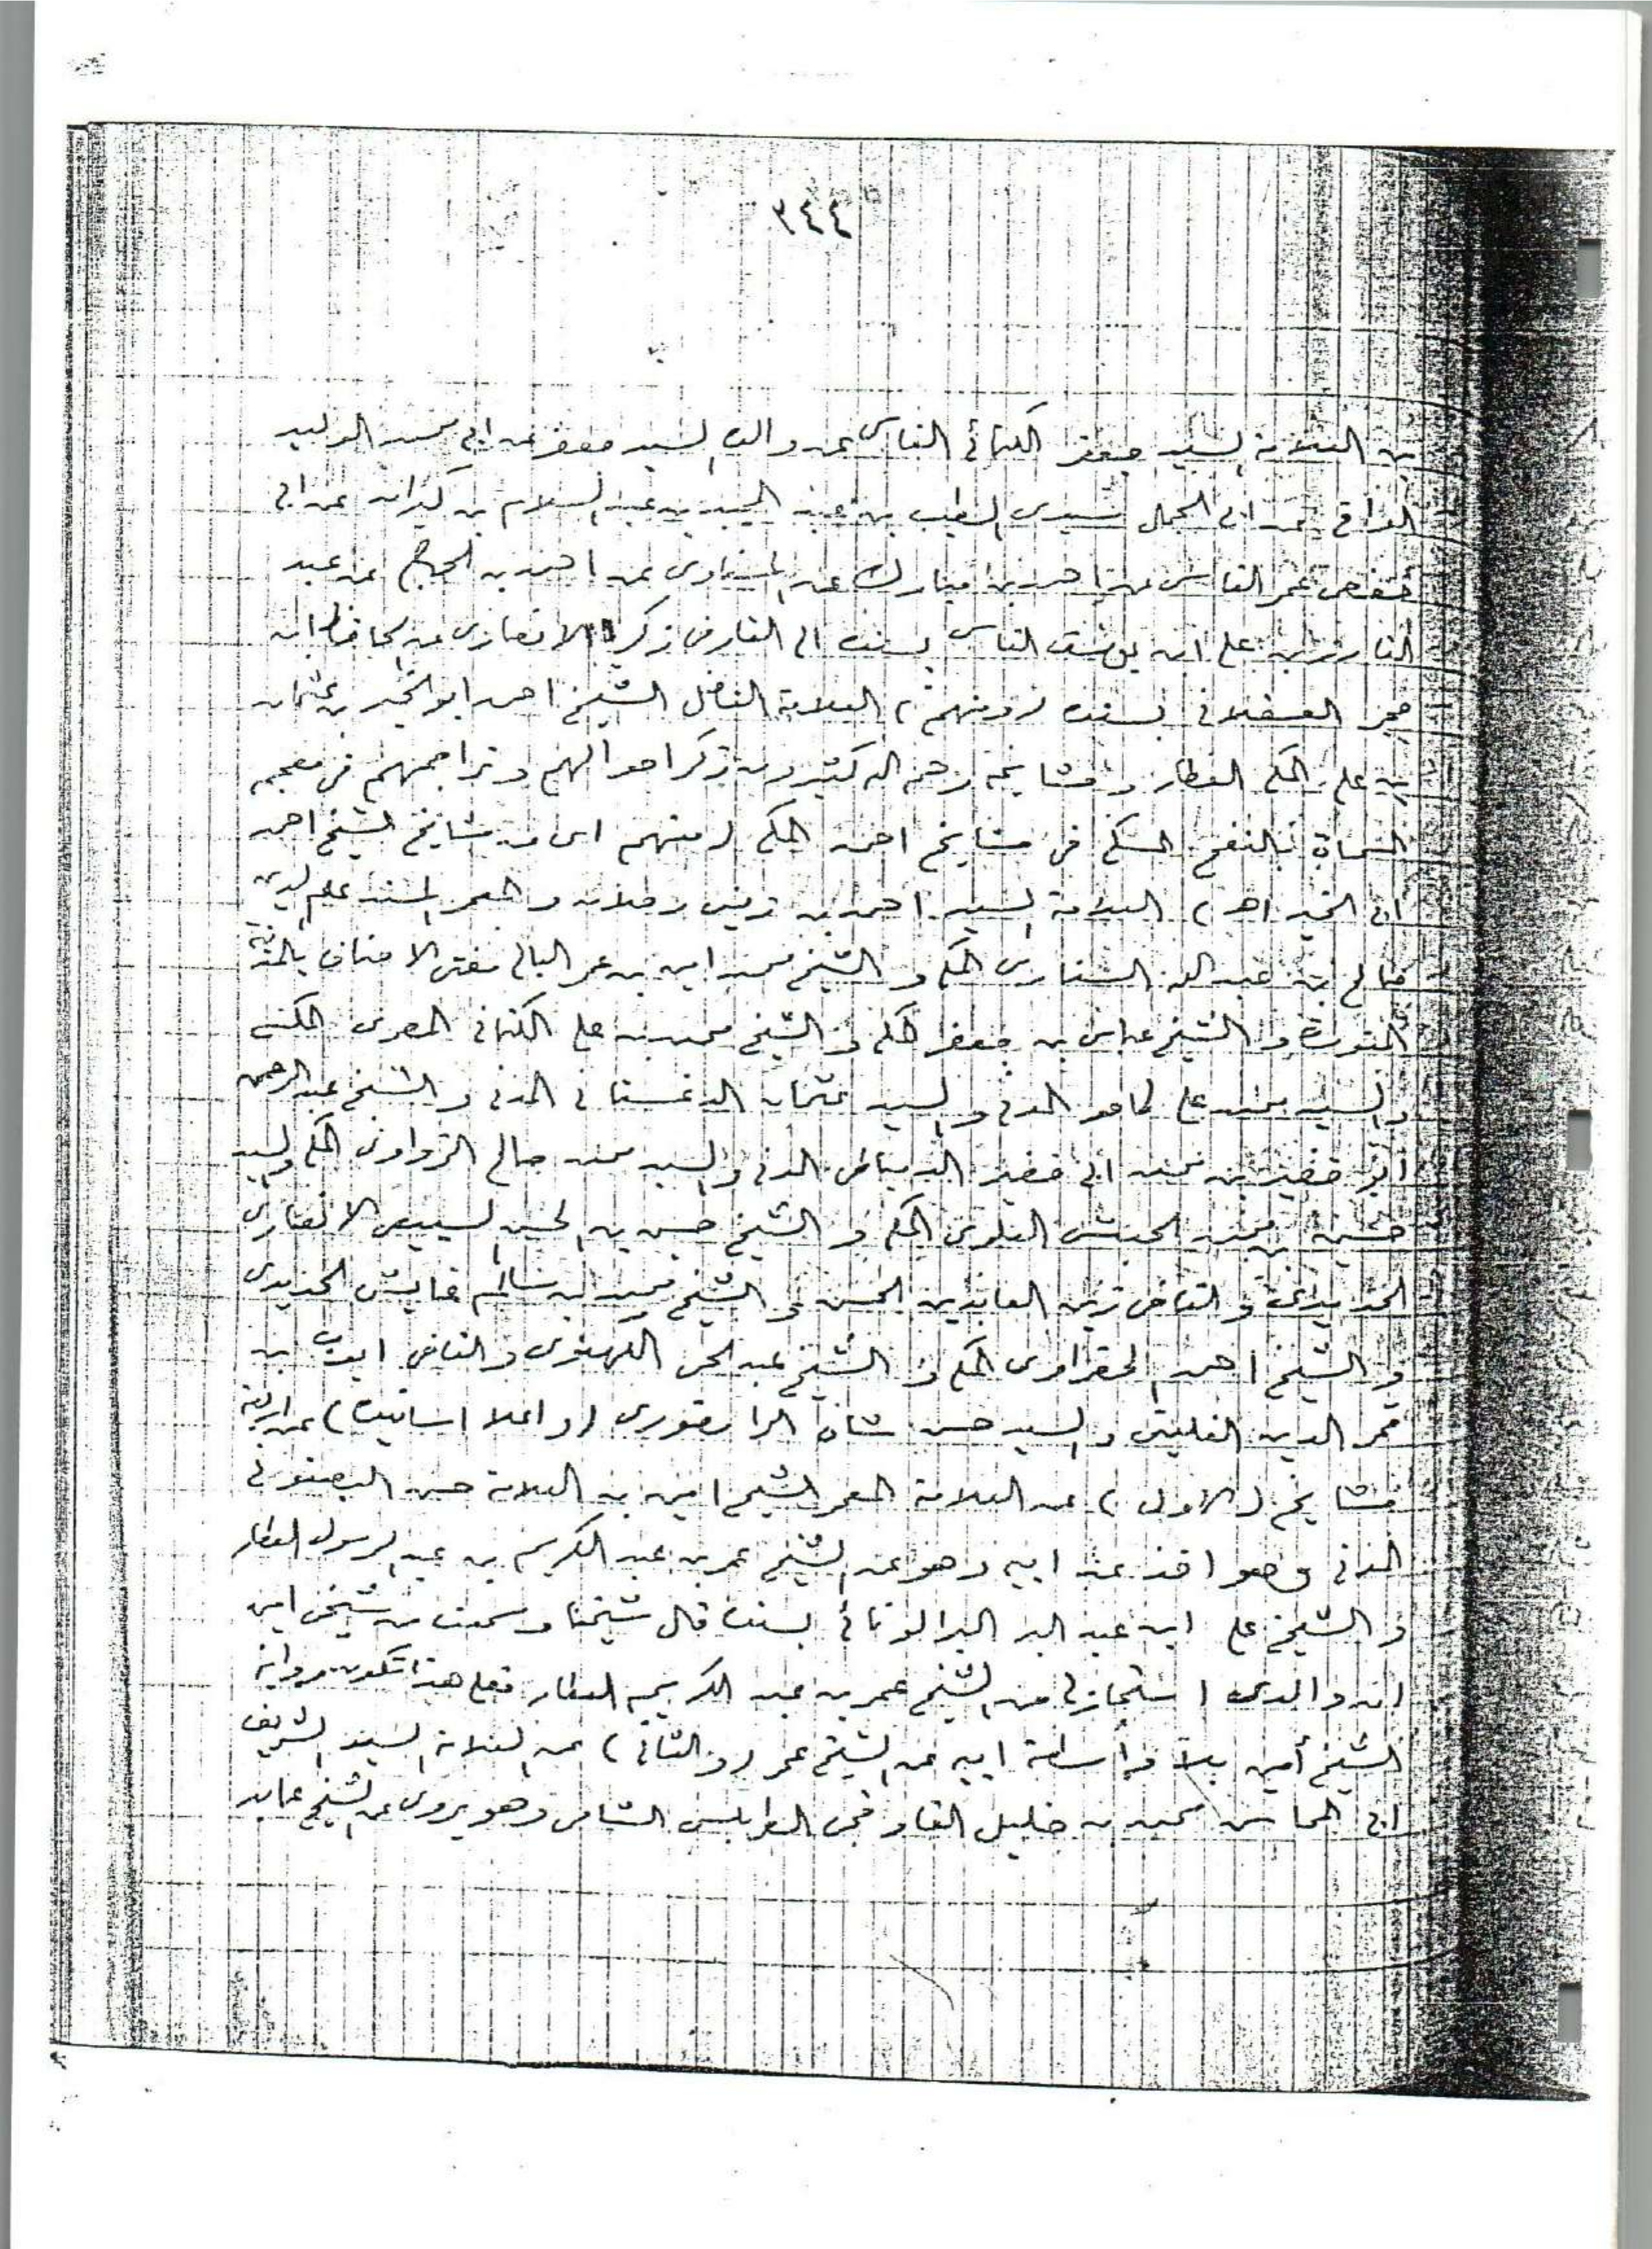 ٣٤٤
بن العلامة السيد جعفر الكتاني الفاسي عن والده السيد جعفر عن ابي محمد الوليد
العراقي عن ابي الجمال سيدي الطيب بن عبد المجيد بن عبد السلام بن كيران عن ابي
حفص عمر الفاسي عن احمد بن مبارك عن المسناوي عن احمد بن الحاج عن عبد
القادر بن علي ابن يوسف الفاسي بسنده الى القاضي زكريا الانصاري عن الحافظ ابن
حجر العسقلاني بسنده (ومنهم) العلامة الفاضل الشيخ احمد ابو الخير بن عثمان
بن علي المكي العطار ومشايخه رحمه الله كثيرون ذكر احوالهم وتراجمهم في معجمه
المسماة بالنفح المسكي في مشايخ احمد المكي (منهم اي من مشايخ الشيخ احمد
ابي الخير اهـ) العلامة السيد احمد بن زيني دحلان والمعمر المسند علم الدين
صالح بن عبد الله السناري المكي والشيخ محمد امين بن عمر البالي مفتي الاحناف بالمدينة
المنورة والشيخ عباس بن جعفر المكي والشيخ محمد بن علي الكناني المصري المكي
والسيد محمد علي ظاهر المدني والسيد عثمان الداغستاني المدني والشيخ عبد الرحمن
ابو خضير بن محمد ابي خضير الدمياطي المدني والسيد محمد صالح الزواوي المكي والسيد
حسين بن محمد الحبشي العلوي المكي والشيخ حسين بن محسن السبيعي الانصاري
الحديدي والقاضي زين العابدين المحسن والشيخ محمد بن سالم عايش الحديدي
والشيخ احمد الحضراوي المكي والشيخ عبد الحي اللكهنوي والقاضي ايوب بن
قمر الدين الفلتي والسيد حسن شاه الرامفوري (واعلا اسانيده) عن اربعة
مشايخ (الاول) عن العلامة المعمر الشيخ امين بن العلامة حسن البوسنوي
المدني وهو اخذ عن ابيه وهو عن الشيخ عمر بن عبد الكريم بن عبد الرسول العطار
والشيخ علي ابن عبد البر البر الونائي بسنده قال شيخنا وسمعت من شيخي امين
ان والدي استجاز لي من الشيخ عمر بن عبد الكريم العطار فعلى هذا تكون رواية
الشيخ أمين بلا واسطة ابيه عن الشيخ عمر (والثاني) عن العلامة السيد الشريف
ابي المحاسن محمد بن خليل القاوقجي الطرابلسي الشامي وهو يروي عن الشيخ عابد